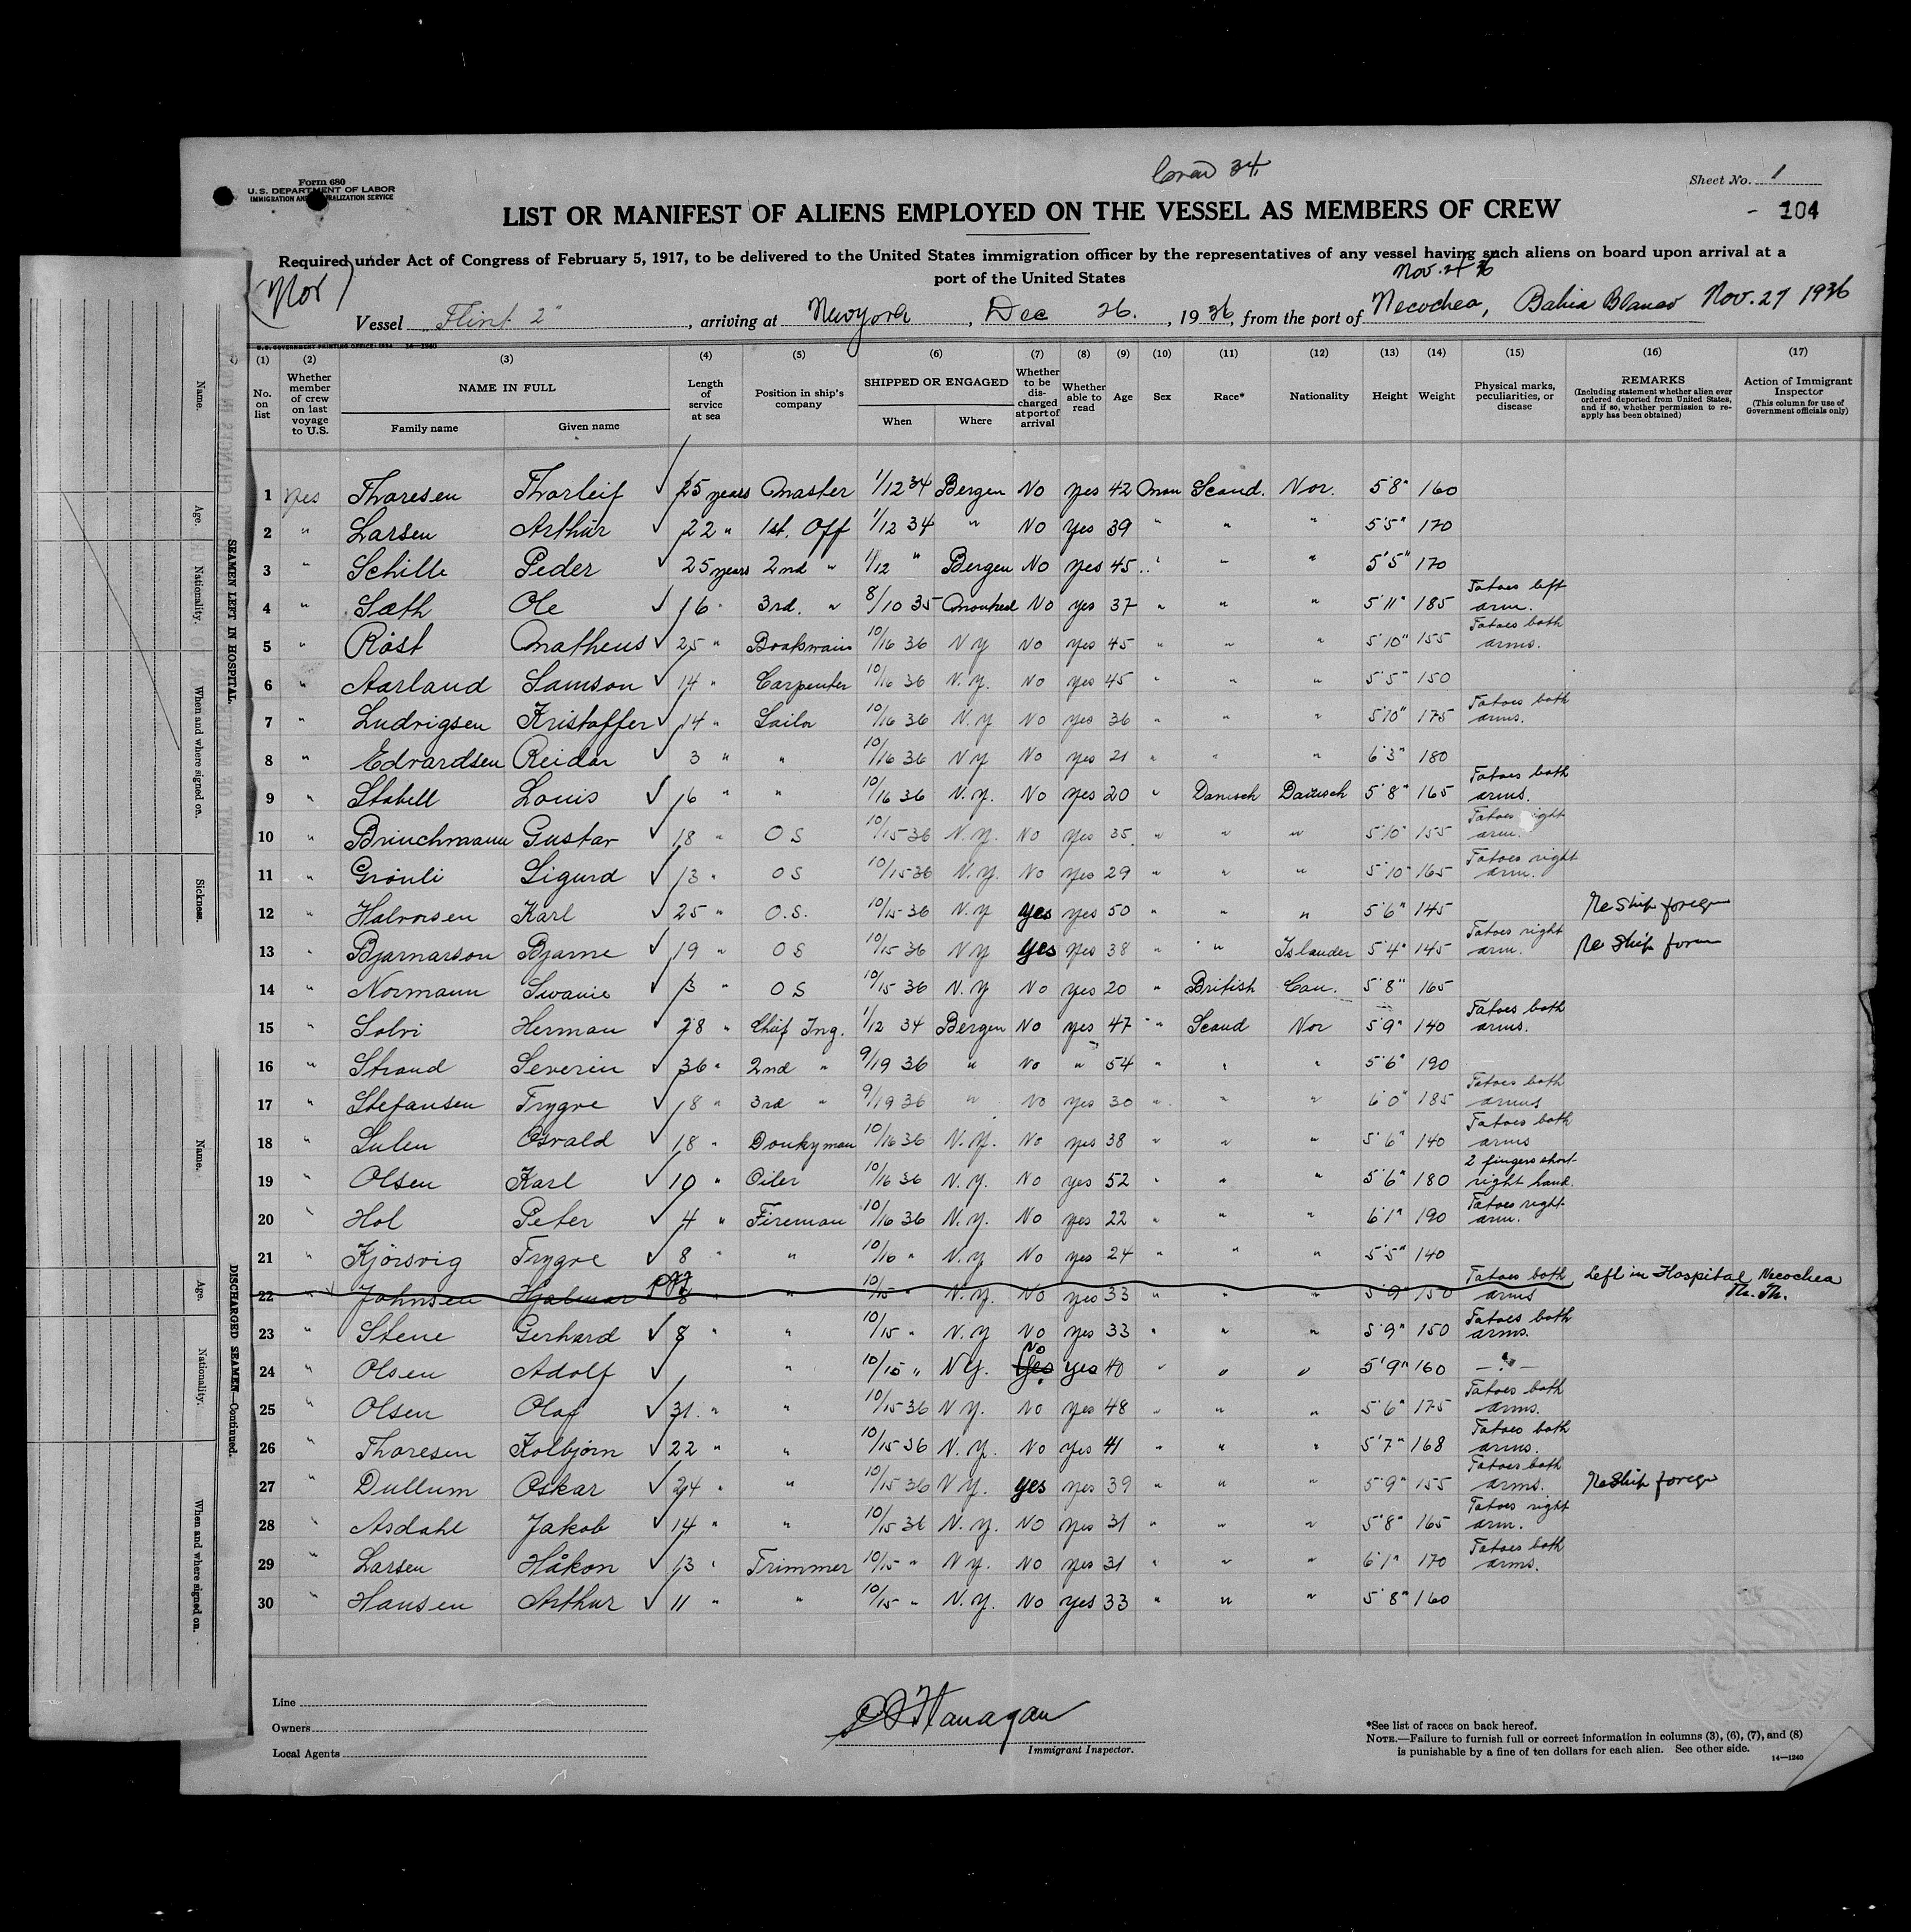 Crew 34
Form 680
U.S. DEPARTMENT OF LABOR
IMMIGRATION AND NATURALIZATION SERVICE
Sheet No. 1
LIST OR MANIFEST OF ALIENS EMPLOYED ON THE VESSEL AS MEMBERS OF CREW
- 104
Required under Act of Congress of February 5, 1917, to be delivered to the United States immigration officer by the representatives of any vessel having such aliens on board upon arrival at a
port of the United States
(Nor)
Vessel "Flint 2", arriving at Newyork, Dec 26., 1936, from the port of Necochea, Bahia Blanco Nov. 27 1936
U.S. GOVERNMENT PRINTING OFFICE: 1934 14—1240
(1) (2) (3) (4) (5) (6) (7) (8) (9) (10) (11) (12) (13) (14) (15) (16) (17)
No. on list
Whether member of crew on last voyage to U.S.
NAME IN FULL
Family name Given name
Length of service at sea
Position in ship's company
SHIPPED OR ENGAGED
When Where
Whether to be discharged at port of arrival
Whether able to read
Age
Sex
Race*
Nationality
Height
Weight
Physical marks, peculiarities, or disease
REMARKS
(Including statement whether alien ever ordered deported from United States, and if so, whether permission to reapply has been obtained)
Action of Immigrant Inspector
(This column for use of Government officials only)
1 yes Thoresen Thorleif ✓ 25 years Master 1/12 34 Bergen No yes 42 Man Scand. Nor. 5'8" 160
2 " Larsen Arthur ✓ 22 " 1st. Off 1/12 34 " No yes 39 " " " 5'5" 170
3 " Schille Peder ✓ 25 years 2nd " 1/12 " Bergen No yes 45 " " " 5'5" 170
4 " Sæth Ole ✓ 16 " 3rd. " 8/10 35 Montreal No yes 37 " " " 5'11" 185 Tatoes left arm.
5 " Råst Matheus ✓ 25 " Boatswain 10/16 36 N Y No yes 45 " " " 5'10" 155 Tatoes both arms.
6 " Aarland Samson ✓ 14 " Carpenter 10/16 36 N.Y. No yes 45 " " " 5'5" 150
7 " Ludvigsen Kristoffer ✓ 14 " Sailor 10/16 36 N.Y No yes 36 " " " 5'10" 175 Tatoes both arms.
8 " Edvardsen Reidar ✓ 3 " " 10/16 36 N Y No yes 21 " " " 6'3" 180
9 " Stabell Louis ✓ 6 " " 10/16 36 N.Y. No yes 20 " Danisch Danisch 5'8" 165 Tatoes both arms.
10 " Brinchmann Gustav ✓ 18 " O S 10/15 36 N.Y. No yes 35 " " " 5'10" 155 Tatoes right arm.
11 " Grönli Sigurd ✓ 13 " O S 10/15 36 N.Y. No yes 29 " " " 5'10" 165 Tatoes right arm.
12 " Halvorsen Karl ✓ 25 " O.S. 10/15 36 N.Y yes yes 50 " " " 5'6" 145 Re ship foreign
13 " Bjarnarson Bjarne ✓ 19 " O S 10/15 36 N Y yes yes 38 " " Islander 5'4" 145 Tatoes right arm. Re ship foreign
14 " Normann Swanie ✓ 3 " O S 10/15 36 N.Y No yes 20 " British Can. 5'8" 165
15 " Solvi Herman ✓ 28 " Chief Ing. 1/12 34 Bergen No yes 47 " Scand Nor 5'9" 140 Tatoes both arms.
16 " Strand Severin ✓ 36 " 2nd " 9/19 36 " No " 54 " " " 5'6" 190
17 " Stefansen Trygve ✓ 18 " 3rd " 9/19 36 " No yes 30 " " " 6'0" 185 Tatoes both arms
18 " Sulen Osvald ✓ 18 " Donkyman 10/16 36 N.Y. No yes 38 " " " 5'6" 140 Tatoes both arms
19 " Olsen Karl ✓ 10 " Oiler 10/16 36 N.Y. No yes 52 " " " 5'6" 180 2 fingers short right hand.
20 " Hol Peter ✓ 4 " Fireman 10/16 36 N.Y. No yes 22 " " " 6'1" 190 Tatoes right arm.
21 " Kjörsvig Trygve ✓ 8 " " 10/16 " N.Y No yes 24 " " " 5'5" 140
22 " Johnsen Hjalmar 8 " " 10/15 " N.Y. No yes 33 " " " 5'9" 150 Tatoes both arms Left in Hospital Necochea Th. Th.
23 " Stene Gerhard ✓ 8 " " 10/15 " N.Y No yes 33 " " " 5'9" 150 Tatoes both arms.
24 " Olsen Adolf ✓ " 10/15 " N Y. Yes No yes 40 " " " 5'9" 160 — " —
25 " Olsen Olaf ✓ 31 " " 10/15 36 N Y. No yes 48 " " " 5'6" 175 Tatoes both arms.
26 " Thoresen Kolbjorn ✓ 22 " " 10/15 36 N.Y. No yes 41 " " " 5'7" 168 Tatoes both arms.
27 " Dullum Oskar ✓ 24 " " 10/15 36 N Y. yes yes 39 " " " 5'9" 155 Tatoes both arms. Reship foreign
28 " Asdahl Jakob ✓ 14 " " 10/15 36 N.Y. No yes 31 " " " 5'8" 165 Tatoes right arm.
29 " Larsen Håkon ✓ 13 " Trimmer 10/15 " N Y. No yes 31 " " " 6'1" 170 Tatoes both arms.
30 " Hansen Arthur ✓ 11 " " 10/15 " N.Y. No yes 33 " " " 5'8" 160
Line
Owners
Local Agents
Flanagan
Immigrant Inspector.
*See list of races on back hereof.
NOTE.—Failure to furnish full or correct information in columns (3), (6), (7), and (8)
is punishable by a fine of ten dollars for each alien. See other side.
14—1240
SEAMEN LEFT IN HOSPITAL.
Name. Age. Nationality. When and where signed on. Sickness.
DISCHARGED SEAMEN—Continued.
Name. Age. Nationality. When and where signed on.